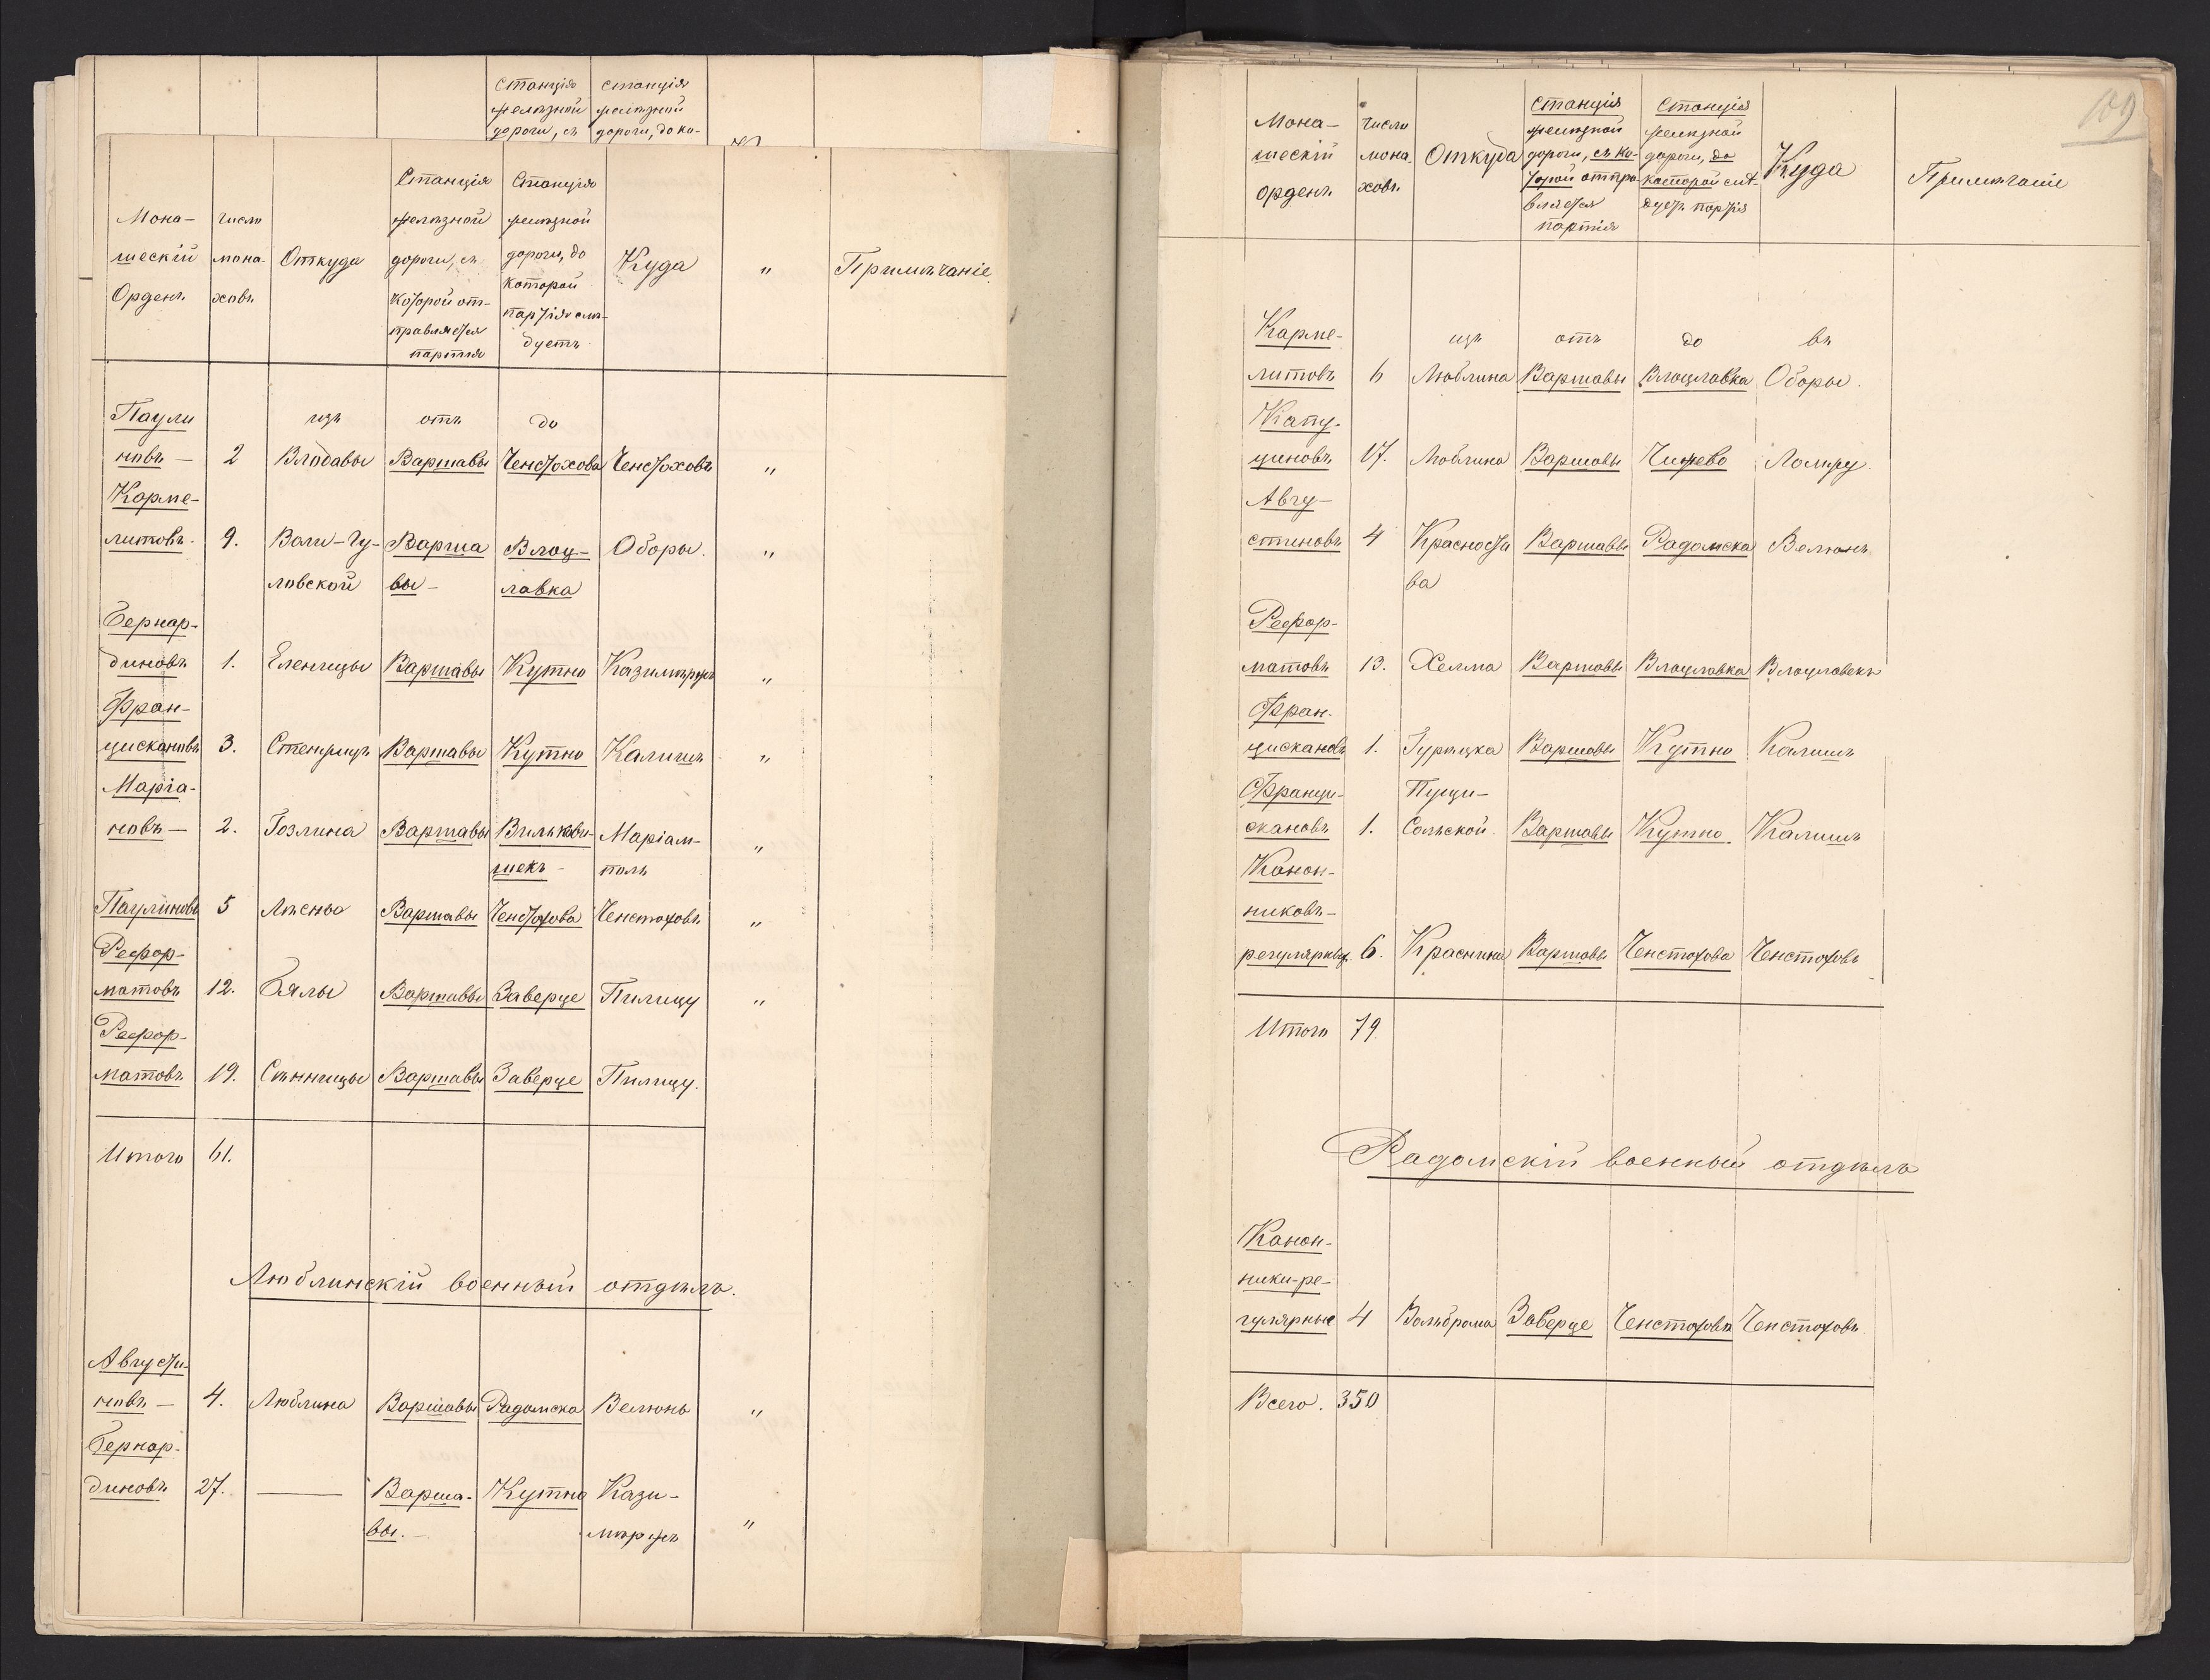 Станція Станція
желѣзной желѣзной
дороги, съ дороги, до ко-
Мона-
шескій
Орденъ
Число
мона-
ховъ
Откуда
Станція
желѣзной
дороги, съ
которой от-
правляется
партія
Станція
желѣзной
дороги, до
которой
партія слѣ-
дуетъ
Куда
"
Примѣчаніе
Паули изъ отъ до
новъ — 2 Влодавы Варшавы Ченстохова Ченстоховъ "
Карме-
литовъ. 9. Воли-Гу- Варша Влоц- Оборы. "
ловской вы - лавка
Бернар-
диновъ 1. Еленицы Варшавы Кутно Казимѣржъ "
Фран-
цискановъ 3. Стенжицъ Варшавы Кутно Калишъ "
Маріа-
новъ — 2. Гозлина Варшавы Вильковы- Маріам- "
шекъ - поль
Паулиновъ 5 Лѣсно Варшавы Ченстохова Ченстоховъ "
Рефор-
матовъ 12. Бялы Варшавы Заверце Пилицу "
Рефор-
матовъ 19. Сѣнницы Варшавы Заверце Пилицу.
Итого 61.
Люблинскій военный отдѣлъ.
Августи-
новъ — 4. Люблина Варшавы Радомска Велюнь "
Бернар-
диновъ 27. — Варша- Кутно Кази- "
вы. — мѣржъ
109
Мона-
шескій
орденъ
Число
мона-
ховъ
Откуда
Станція
желѣзной
дороги, съ ко-
торой отпра-
вляется
партія
Станція
желѣзной
дороги, до
которой слѣ-
дуетъ партія
Куда
Примѣчаніе
Карме- изъ отъ до въ
литовъ 6 Люблина Варшавы Влоцлавка Оборы.
Капу-
циновъ 17. Люблина Варшавы Чижево Ломжу.
Авгу-
стиновъ 4 Красноста Варшавы Радомска Велюнь
ва
Рефор-
матовъ 13. Хелма Варшавы Влоцлавка Влоцлавекъ
Фран-
цискановъ 1. Гурѣцка Варшавы Кутно Калишъ
Франци- Пущи-
скановъ 1. Сольской Варшавы Кутно Калишъ
Канон-
никовъ-
регулярных. 6. Красника Варшавы Ченстохова Ченстоховъ
Итого 79
Радомскій военный отдѣлъ
Канон-
ники-ре-
гулярные 4 Вольброма Заверце Ченстоховъ Ченстоховъ
Всего. 350